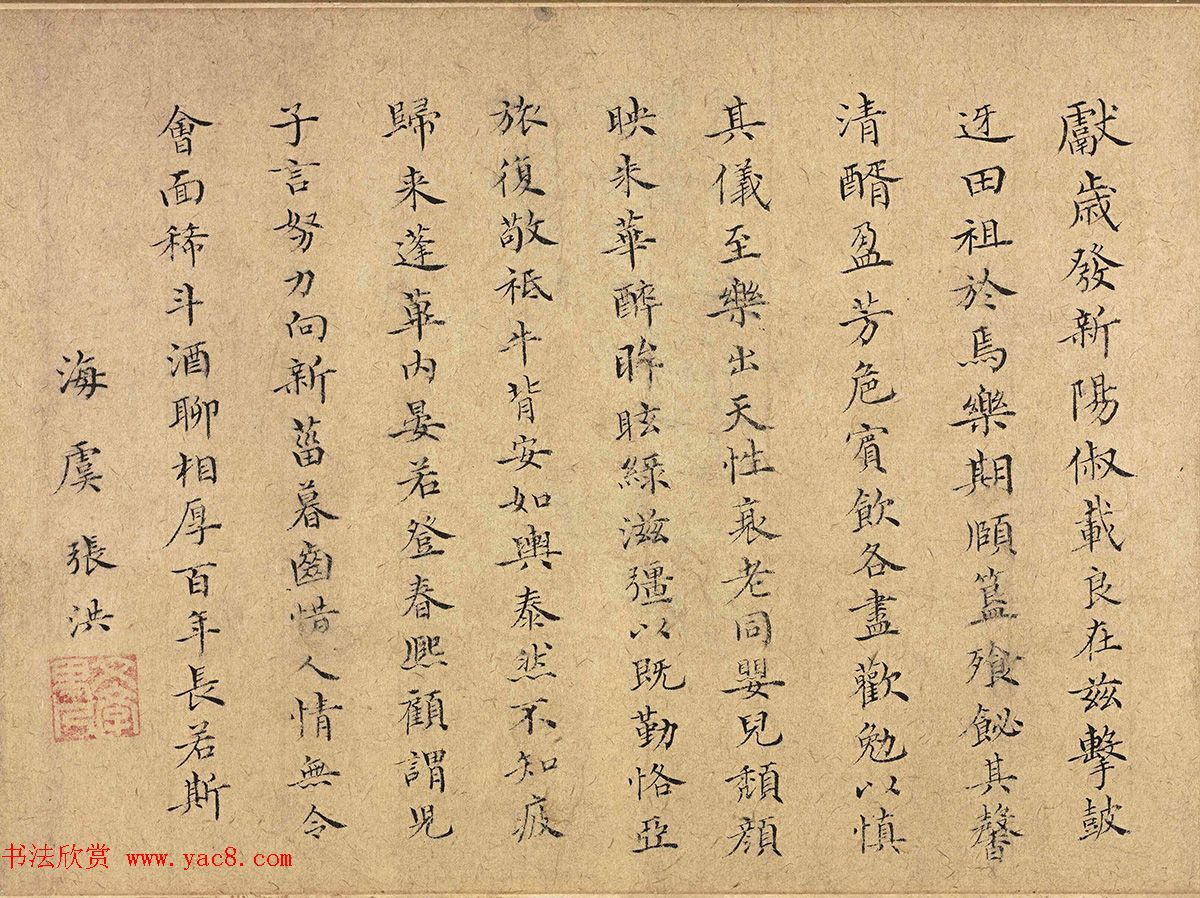 獻歲發新陽俶載良在兹擊鼓
迓田祖於焉樂期頤簋飧飶其馨
清醑盈芳卮賓飲各盡歡勉以慎
其儀至樂出天性衰老同嬰兒頹顔
映来華醉眸眩綠滋彊以既勤恪亞
旅復敬祗牛背安如輿泰然不知疲
歸来蓬蓽内晏若登春熈顧謂児
子言努力向新菑暮齒惜人情無令
會面稀斗酒聊相厚百年長若斯
海虞張洪
书法欣赏 www.yac8.com